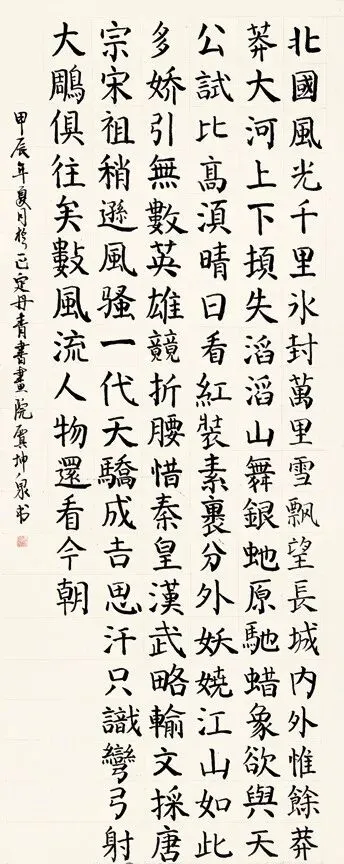 北國風光千里氷封萬里雪飄望長城內外惟餘莽
莽大河上下頓失滔滔山舞銀虵原馳蜡象欲與天
公試比髙湏晴日看紅裝素裹分外妖嬈江山如此
多嬌引無數英雄競折腰惜秦皇漢武略輸文採唐
宗宋祖稍遜風騷一代天驕成吉思汗只識彎弓射
大鵰俱往矣數風流人物還看今朝
甲辰年夏月於正定丹青書畫院賈坤泉书